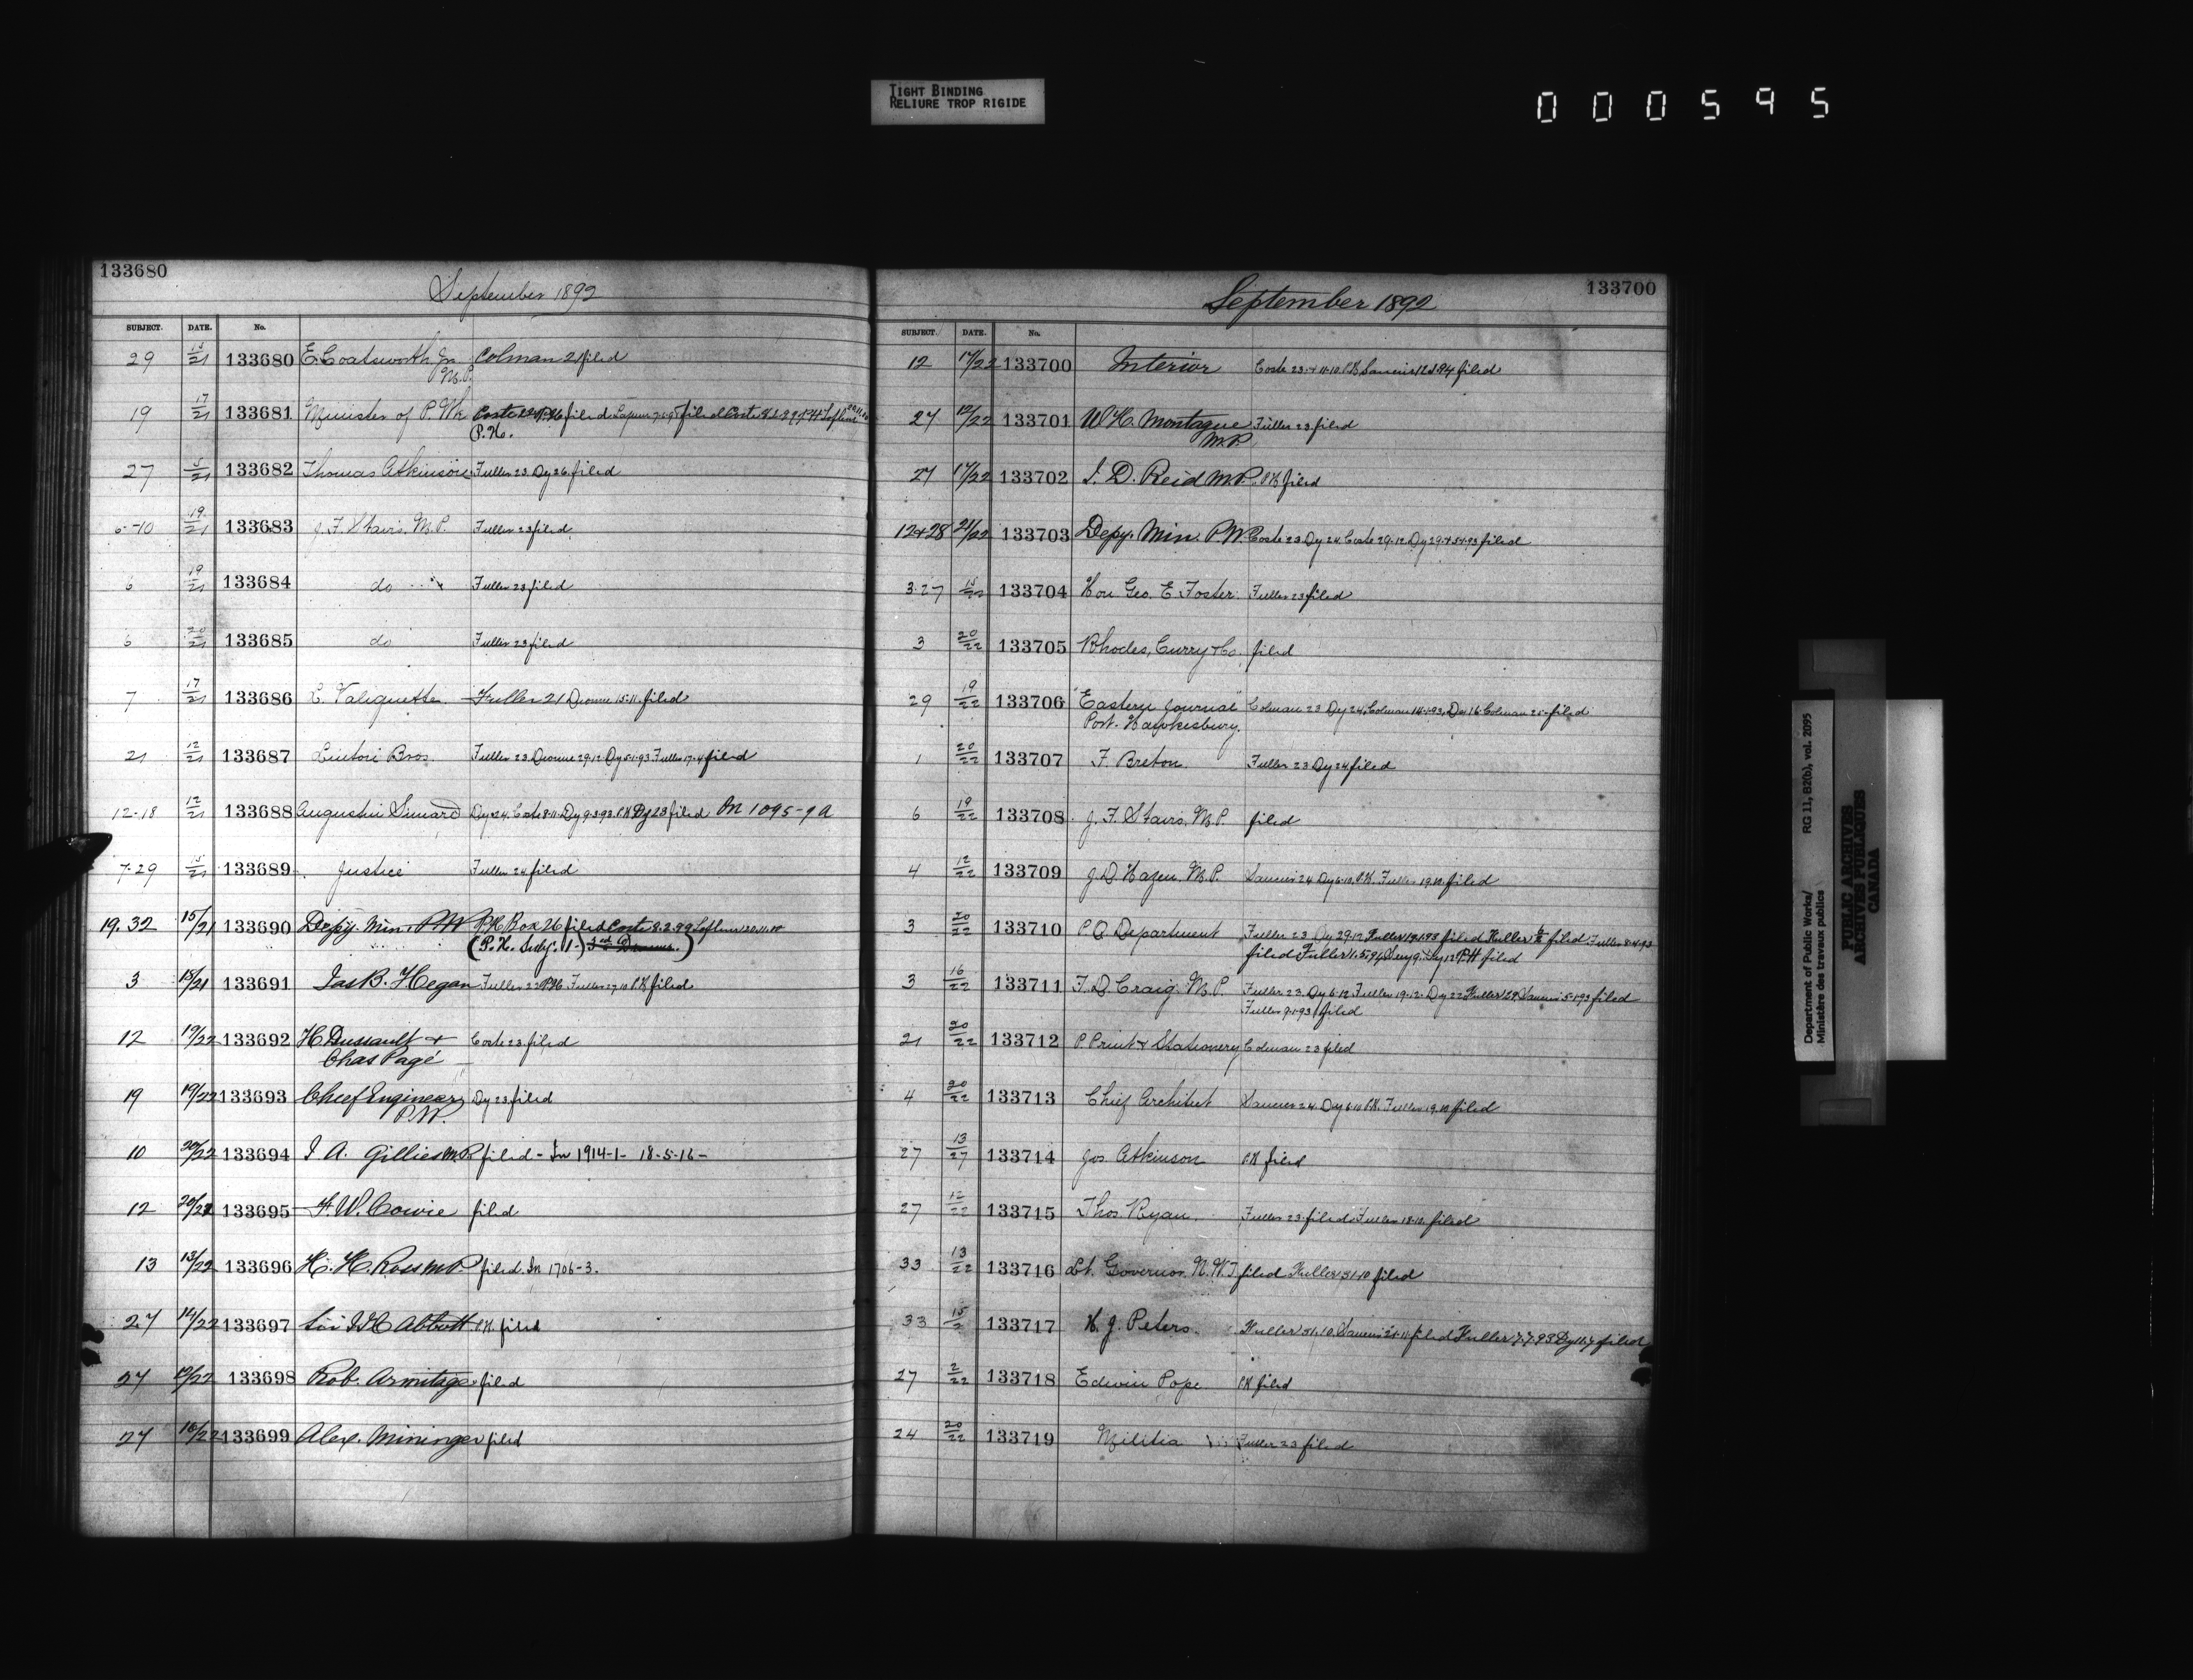 TIGHT BINDING
RELIURE TROP RIGIDE
000595
133680
September 1892
SUBJECT. DATE. No.
29 15/21 133680 E. Coatsworth Jn Colman 21 filed
M.P.
19 17/21 133681 Minister of P. Wk filed
P.H.
27 5/21 133682 Thomas Atkinson Fuller 23 Dy 26 filed
6-10 19/21 133683 J. F. Stairs. M.P. Fuller 23 filed
6 19/21 133684 do Fuller 23 filed
6 20/21 133685 do Fuller 23 filed
7 17/21 133686 Valiquette Fuller 21 Dionne 15-11. filed
21 12/21 133687 Linton Bros. Fuller 23 Dionne 29.12 Dy 5.1.93 Fuller 17.4 filed
12-18 12/21 133688 Augustin Simard Dy 24 Coste 8.11 Dy 9.3.93 P.K Dy 23 filed In 1095-9A
7-29 15/21 133689 Justice Fuller 24 filed
19.32 15/21 133690 Depy. Min. P.W P.H. Box 26 filed Coste 8.2.99
(P.H. Subj. 1-)
3 15/21 133691 Jas B. Hegan Fuller 22 P.K Fuller 27.10 P.K filed
12 19/22 133692 H. Dussault + Coste 23 filed
Chas Pagé
19 19/22 133693 Chief Engineer Dy 23 filed
P.W.
10 20/22 133694 J A. Gillies M.P. filed - In 1914-1- 18-5-16-
12 20/22 133695 F. W. Cowie filed
13 13/22 133696 H. H. Ross M.P. filed. In 1706-3.
27 14/22 133697 Sir J J C Abbott P.K. filed
27 12/22 133698 Rob. Armitage filed
27 16/22 133699 Alex. Mininger filed
133700
September 1892
SUBJECT. DATE. No.
12 17/22 133700 Interior Coste 23 filed
27 12/22 133701 W. H. Montague Fuller 23 filed
M.P.
27 17/22 133702 J. D. Reid M.P. P.K filed
12+28 21/22 133703 Depy. Min. P.W. Coste 23 Dy 24 Coste 29.12 Dy 29 filed
3.27 15/22 133704 Hon Geo. E. Foster. Fuller 23 filed
3 20/22 133705 Rhodes, Curry & Co. filed
29 19/22 133706 "Eastern Journal" Colman 23 Dy 24, Colman 14.1.93, Dy 16 Colman 25 filed
Port. Hawkesbury.
1 20/22 133707 F. Breton. Fuller 23 Dy 24 filed
6 19/22 133708 J. F. Stairs. M.P. filed
4 12/22 133709 J. D. Hazen. M.P. 24 Dy 6.10. P.K. Fuller 19.10. filed
3 20/22 133710 P.O. Department Fuller 23 Dy 29.12 filed Fuller filed Fuller 8.4.93
filed Fuller P.H filed
3 16/22 133711 F. D. Craig. M.P. Fuller 23. Dy 6.12 Fuller 19.12. Dy 22 Fuller 29 5.1.93 filed
Fuller 9.1.93 filed
21 20/22 133712 P. Print & Stationery Colman 23 filed
4 20/22 133713 Chief Architect 24 Dy 6.10 P.K. Fuller 19.10 filed
27 13/27 133714 Jos. Atkinson P.K filed
27 12/22 133715 Thos. Ryan. Fuller 23 filed Fuller 18.10. filed
33 13/22 133716 Lt. Governor. N.W.T filed Fuller 31.10 filed
33 15/2 133717 H. J. Peters. Fuller 31.10. filed Fuller 7.7.93 Dy 11.7 filed
27 2/22 133718 Edwin Pope P.K filed
24 20/22 133719 Militia Fuller 23 filed
Department of Public Works/ RG 11, B2(b), vol. 2095
Ministère des travaux publics
PUBLIC ARCHIVES
ARCHIVES PUBLIQUES
CANADA